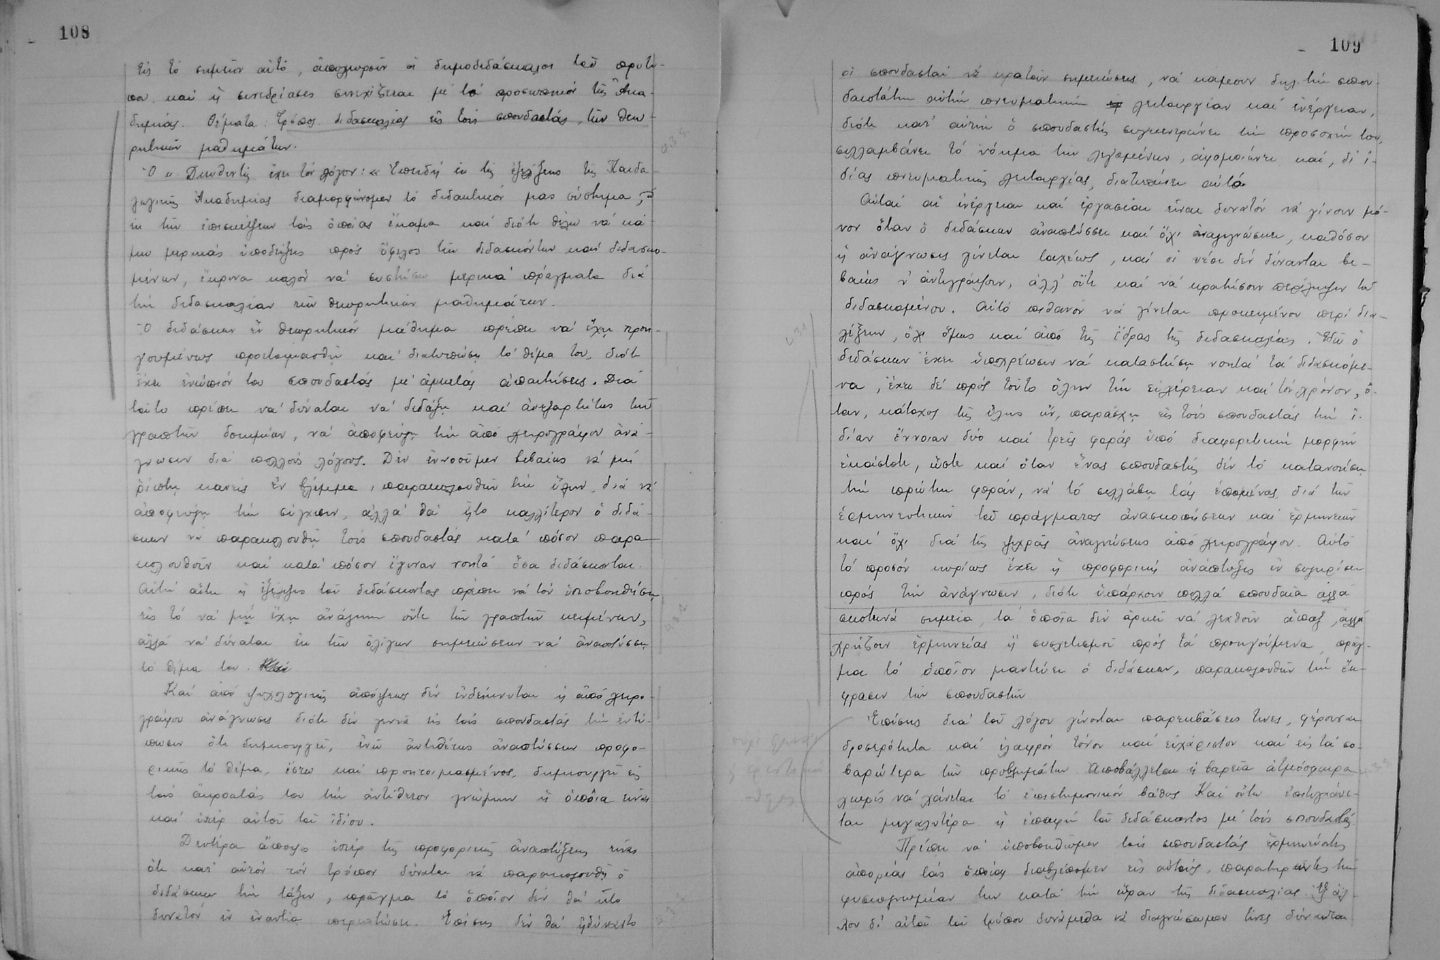 108
Εἰς τὸ σημεῖον αὐτό, ἀποχωροῦν οἱ δημοδιδάσκαλοι τοῦ προτύ-
που καὶ ἡ συνεδρίασις συνεχίζεται μὲ τὸ προσωπικὸν τῆς Ἀκα-
δημίας. Θέματα: Τρόπος διδασκαλίας εἰς τοὺς σπουδαστάς, τῶν θεω-
ρητικῶν μαθημάτων.
Ὁ κ. Διευθυντὴς ἔχει τὸν λόγον: « Ἐπειδὴ ἐκ τῆς ἐξελίξεως τῆς Παιδα-
γωγικῆς Ἀκαδημίας διαμορφώνομεν τὸ διδακτικόν μας σύστημα,
ἐκ τῶν ἐπισκέψεων τὰς ὁποίας ἔκαμα καὶ διότι θέλω νὰ κά-
μω μερικὰς ὑποδείξεις πρὸς ὄφελος τῶν διδασκόντων καὶ διδασκο-
μένων, ἔκρινα καλὸν νὰ συστήσω μερικὰ πράγματα διὰ
τὴν διδασκαλίαν τῶν θεωρητικῶν μαθημάτων.
Ὁ διδάσκων ἓν θεωρητικὸν μάθημα πρέπει νὰ ἔχῃ προη-
γουμένως προετοιμασθῆ καὶ διατυπώσῃ τὸ θέμα του, διότι
ἔχει ἐνώπιόν του σπουδαστὰς μὲ ἀρκετὰς ἀπαιτήσεις. Διὰ
τοῦτο πρέπει νὰ δύναται νὰ διδάξῃ καὶ ἀνεξαρτήτως τῶν
γραπτῶν δοκιμίων, νὰ ἀποφεύγῃ τὴν ἀπὸ χειρογράφου ἀνά-
γνωσιν διὰ πολλοὺς λόγους. Δὲν ἐννοοῦμεν βεβαίως νὰ μὴ
ρίπτῃ κανεὶς ἓν βλέμμα, παρακολουθῶν τὴν ὕλην, διὰ νὰ
ἀποφύγῃ τὴν σύγχισιν, ἀλλὰ θὰ ἦτο καλλίτερον ὁ διδά-
σκων νὰ παρακολουθῇ τοὺς σπουδαστὰς κατὰ πόσον παρα-
κολουθοῦν καὶ κατὰ πόσον ἔγιναν νοητὰ ὅσα διδάσκονται.
Αὐτὴ αὕτη ἡ ἐξέλιξις τοῦ διδάσκοντος πρέπει νὰ τὸν ὑποβοηθήσῃ
εἰς τὸ νὰ μὴ ἔχῃ ἀνάγκην οὔτε τῶν γραπτῶν κειμένων,
ἀλλὰ νὰ δύναται ἐκ τῶν ὀλίγων σημειώσεων νὰ ἀναπτύσσῃ
τὸ θέμα του.
Καὶ ἀπὸ ψυχολογικῆς ἀπόψεως δὲν ἐνδείκνυται ἡ ἀπὸ χειρο-
γράφου ἀνάγνωσις διότι δὲν γεννᾷ εἰς τοὺς σπουδαστὰς τὴν ἐντύ-
πωσιν ὅτι δημιουργεῖ, ἐνῷ ἀντιθέτως ἀναπτύσσων προφο-
ρικῶς τὸ θέμα, ἔστω καὶ προητοιμασμένος, δημιουργεῖ εἰς
τοὺς ἀκροατάς του τὴν ἀντίθετον γνώμην ἡ ὁποία εἶναι
καὶ ὑπὲρ αὐτοῦ τοῦ ἰδίου.
Δευτέρα ἄποψις ὑπὲρ τῆς προφορικῆς ἀναπτύξεως εἶναι
ὅτι κατ' αὐτὸν τὸν τρόπον δύναται νὰ παρακολουθῇ ὁ
διδάσκων τὴν τάξιν, πρᾶγμα τὸ ὁποῖον δὲν θὰ ἦτο
δυνατὸν ἐν ἐναντίᾳ περιπτώσει. Ἐπίσης δὲν θὰ ἠδύναντο
109
οἱ σπουδασταὶ νὰ κρατοῦν σημειώσεις, νὰ κάμουν δηλ. τὴν σπου-
δαιοτάτην αὐτὴν πνευματικὴν λειτουργίαν καὶ ἐνέργειαν,
διότι κατ' αὐτὴν ὁ σπουδαστὴς συγκεντρώνει τὴν προσοχήν του,
συλλαμβάνει τὸ νόημα τῶν λεγομένων, ἀφομοιώνει καὶ, δι' ἰ-
δίας πνευματικῆς λειτουργίας, διατυπώνει αὐτά.
Αὐταὶ αἱ ἐνέργειαι καὶ ἐργασίαι εἶναι δυνατὸν νὰ γίνουν μό-
νον ὅταν ὁ διδάσκων ἀναπτύσσει καὶ ὄχι ἀναγινώσκει, καθόσον
ἡ ἀνάγνωσις γίνεται ταχέως, καὶ οἱ νέοι δὲν δύνανται βε-
βαίως ν' ἀντιγράφουν, ἀλλ' οὔτε καὶ νὰ κρατήσουν περίληψιν τοῦ
διδασκομένου. Αὐτὸ πιθανὸν νὰ γίνεται προκειμένου περὶ δια-
λέξεων, ὄχι ὅμως καὶ ἀπὸ τῆς ἕδρας τῆς διδασκαλίας. Ἐδῶ ὁ
διδάσκων ἔχει ὑποχρέωσιν νὰ καταστήσῃ νοητὰ τὰ διδασκόμε-
να, ἔχει δὲ πρὸς τοῦτο ὅλην τὴν εὐχέρειαν καὶ τὸν χρόνον, ὅ-
ταν, κάτοχος τῆς ὕλης ὤν, παράσχῃ εἰς τοὺς σπουδαστὰς τὴν ἰ-
δίαν ἔννοιαν δύο καὶ τρεῖς φορὰς ὑπὸ διαφορετικὴν μορφὴν
ἑκάστοτε, ὥστε καὶ ὅταν ἕνας σπουδαστὴς δὲν τὸ κατανοήσῃ
τὴν πρώτην φοράν, νὰ τὸ συλλάβῃ τὰς ἑπομένας διὰ τῶν
ἑρμηνευτικῶν τοῦ πράγματος ἀνασκοπήσεων καὶ ἑρμηνειῶν
καὶ ὄχι διὰ τῆς ψυχρᾶς ἀναγνώσεως ἀπὸ χειρογράφου. Αὐτὸ
τὸ προσὸν κυρίως ἔχει ἡ προφορικὴ ἀνάπτυξις ἐν συγκρίσει
πρὸς τὴν ἀνάγνωσιν, διότι ὑπάρχουν πολλὰ σπουδαῖα ἀλλὰ
σκοτεινὰ σημεῖα, τὰ ὁποῖα δὲν ἀρκεῖ νὰ λεχθοῦν ἅπαξ, ἀλλὰ
χρήζουν ἑρμηνείας ἢ συσχετισμοῦ πρὸς τὰ προηγούμενα, πρᾶγ-
μα τὸ ὁποῖον μαντεύει ὁ διδάσκων, παρακολουθῶν τὴν ἔκ-
φρασιν τῶν σπουδαστῶν
Ἐπίσης διὰ τοῦ λόγου γίνονται παρεκβάσεις τινες, φέρουσαι
δροσερότητα καὶ ἐλαφρὸν τόνον καὶ εὐχάριστον καὶ εἰς τὰ σο-
βαρώτερα τῶν προβλημάτων. Ἀποβάλλεται ἡ βαρεῖα ἀτμόσφαιρα
χωρὶς νὰ χάνεται τὸ ἐπιστημονικὸν βάθος. Καὶ οὕτω ἐπιτυγχάνε-
ται μεγαλυτέρα ἡ ἐπαφὴ τοῦ διδάσκοντος μὲ τοὺς σπουδαστάς
Πρέπει νὰ ὑποβοηθῶμεν τοὺς σπουδαστὰς ἑρμηνεύοντες
ἀπορίας τὰς ὁποίας διαβλέπομεν εἰς αὐτούς, παρατηροῦντες τὴν
φυσιογνωμίαν των κατὰ τὴν ὥραν τῆς διδασκαλίας. Ἐξ ἄλ-
λου δι' αὐτοῦ τοῦ τρόπου δυνάμεθα νὰ διαγνώσωμεν τίνες δύνανται